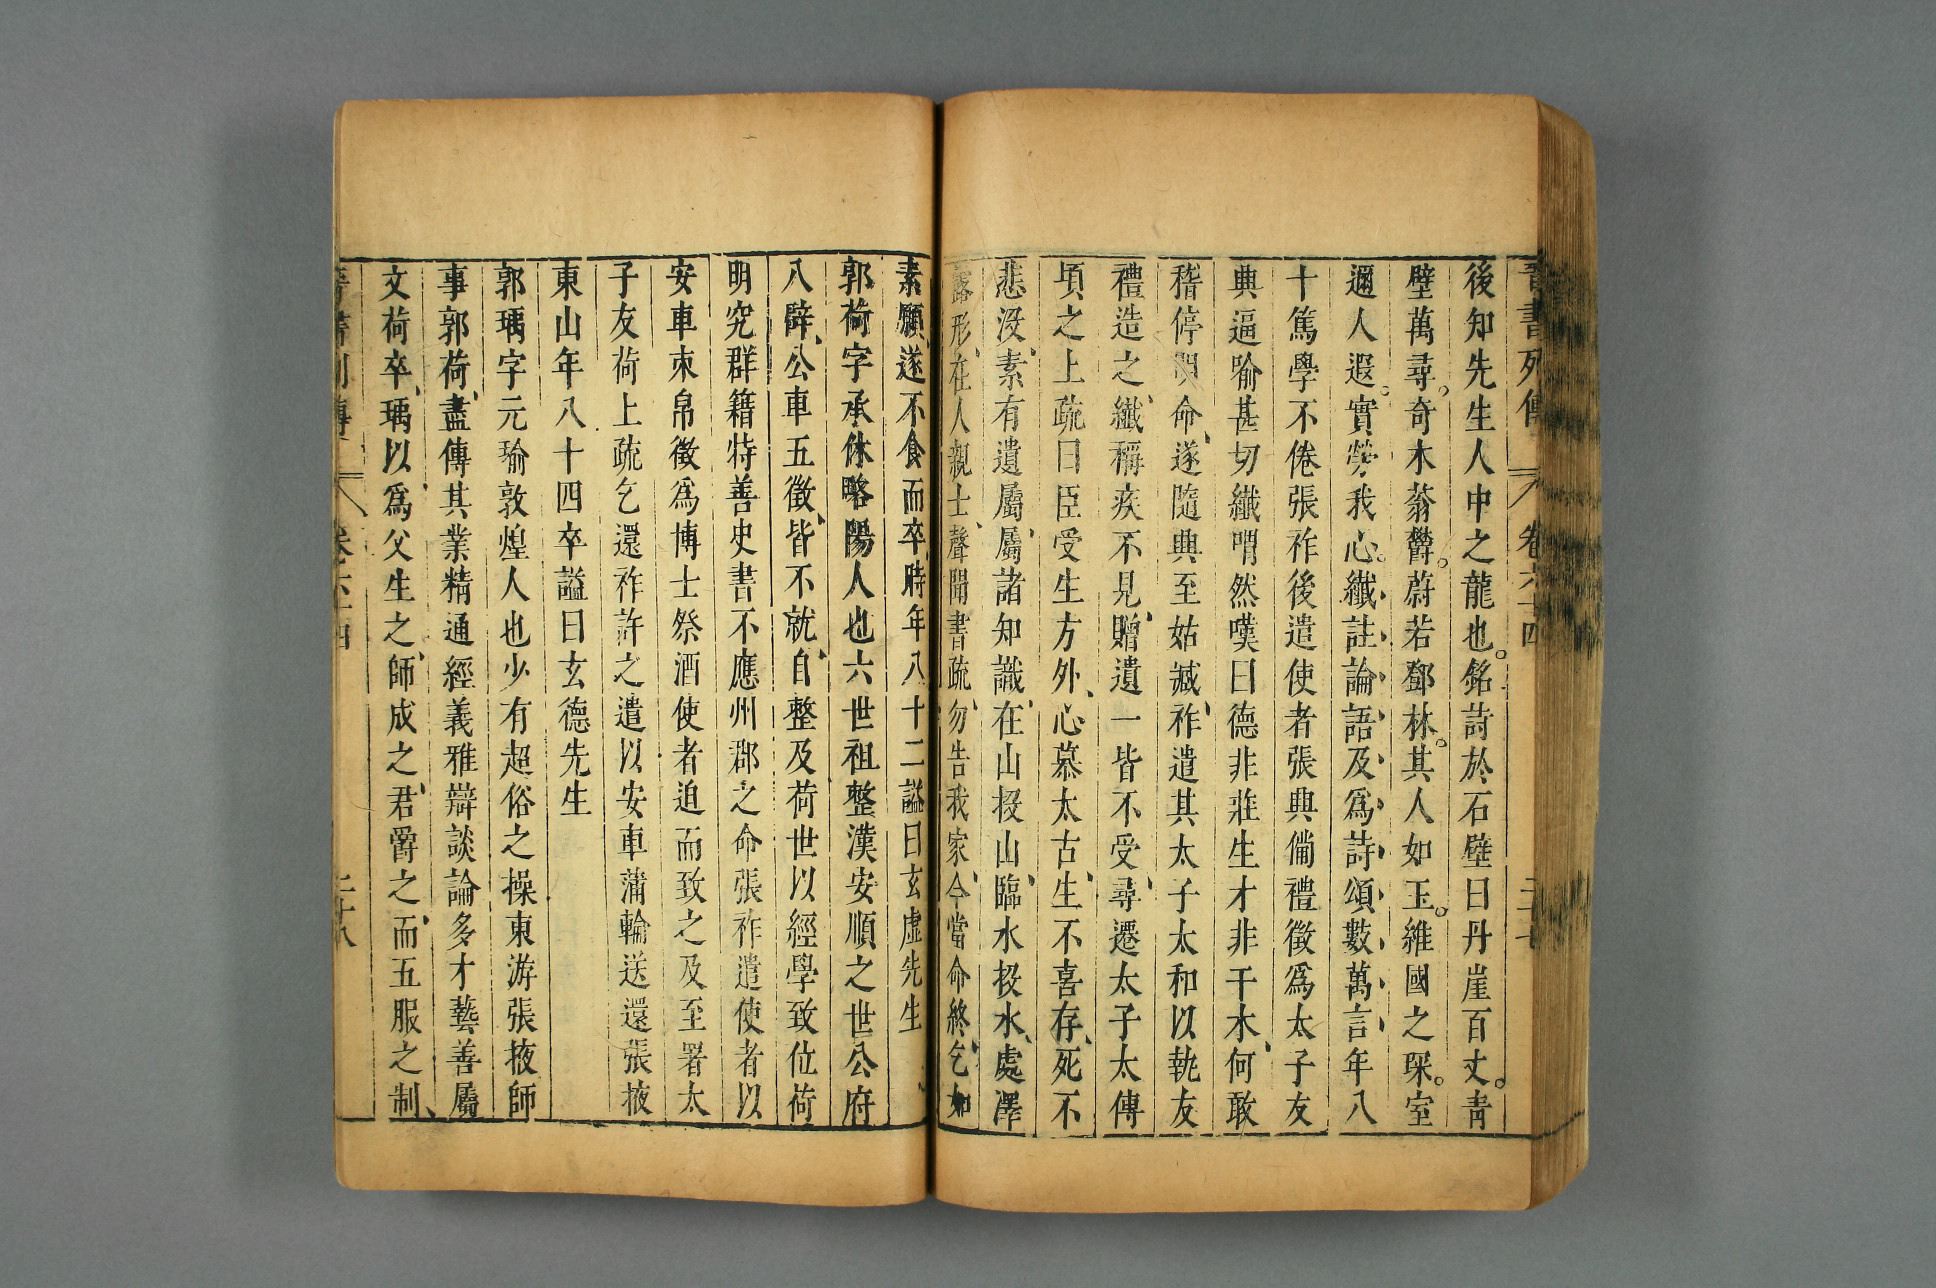 晉書列傳 卷六十四 二十七
後知先生人中之龍也。銘詩於石壁曰丹崖百丈。青
壁萬尋。奇木蓊鬱。蔚若鄧林。其人如玉。維國之琛。室
邇人遐。實勞我心。纖註論語及爲詩頌數萬言年八
十篤學不倦張祚後遣使者張興備禮徵爲太子友
興逼喻甚切纖喟然嘆曰德非莊生才非干木何敢
稽停明命、遂隨興至姑臧祚遣其太子太和以執友
禮造之、纖稱疾不見、贈遺一皆不受、尋遷太子太傅
頃之上疏曰臣受生方外、心慕太古、生不喜存、死不
悲没、素有遺屬、屬諸知識、在山投山、臨水投水、處澤
露形、在人親土、聲聞書疏、勿告我家、今當命終、乞如
素願、遂不食而卒、時年八十二謚曰玄虛先生
郭荷字承休略陽人也六世祖整漢安順之世公府
八辟、公車五徵、皆不就、自整及荷世以經學致位荷
明究群籍特善史書不應州郡之命張祚遣使者以
安車束帛徵爲博士祭酒使者迫而致之及至署太
子友荷上疏乞還祚許之遣以安車蒲輪送還張掖
東山年八十四卒謚曰玄德先生
郭瑀字元瑜敦煌人也少有超俗之操東游張掖師
事郭荷、盡傳其業精通經義雅辯談論多才藝善屬
文荷卒、瑀以爲父生之、師成之、君爵之、而五服之制、
晉書列傳 卷六十四 二十八